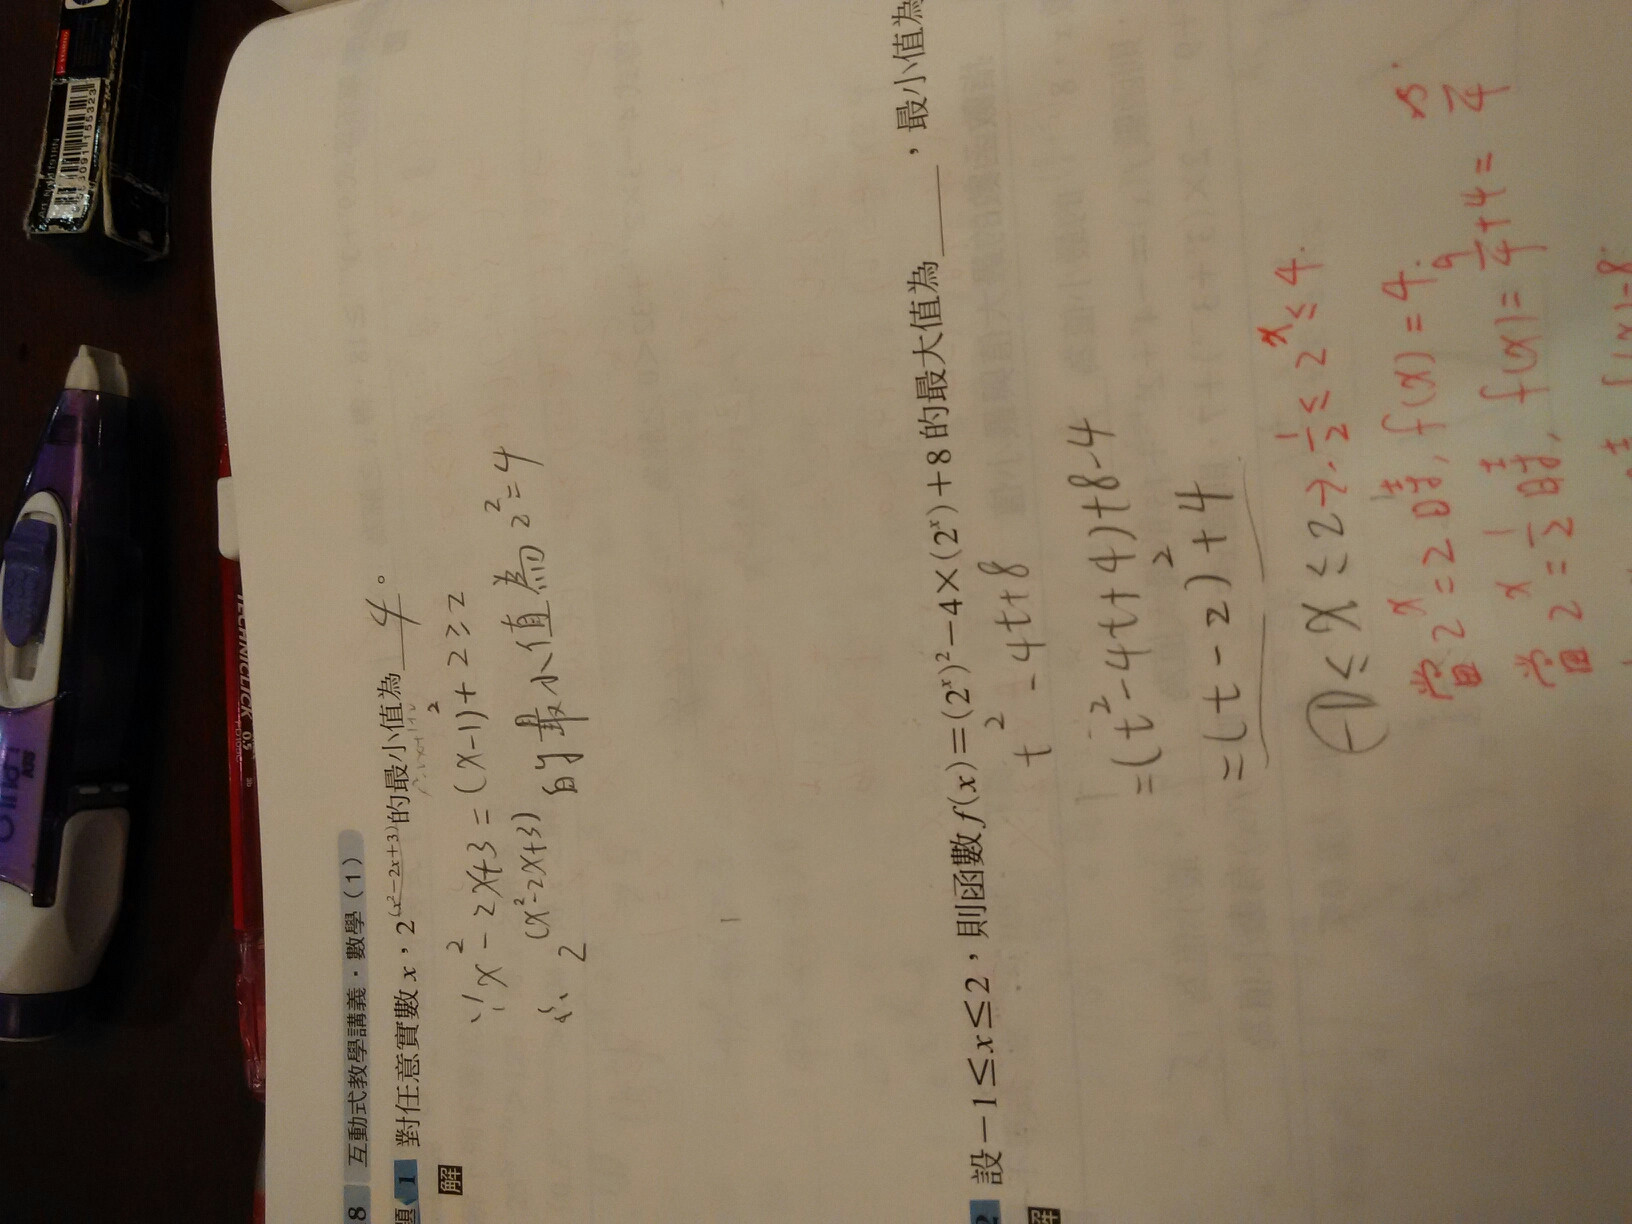 8 互動式教學講義．數學（1）
題 1 對任意實數 x，2^(x²−2x+3) 的最小值為 4 。
解
∵ x² - 2x+3 = (x-1)² + 2 ≥ 2
∴ 2^(x²-2x+3) 的最小值為 2² = 4
2 設 −1≤x≤2，則函數 f(x)=(2ˣ)²−4×(2ˣ)+8 的最大值為____，最小值為
解
t² - 4t+8
=(t²-4t+4)+8-4
=(t-2)²+4
-1 ≤ x ≤ 2 → 1/2 ≤ 2ˣ ≤ 4.
當 2ˣ=2 時, f(x)=4.
當 2ˣ=1/2 時, f(x)= 9/4 +4 = 25/4
時 f(x)=8
TECHNICLICK 0.5